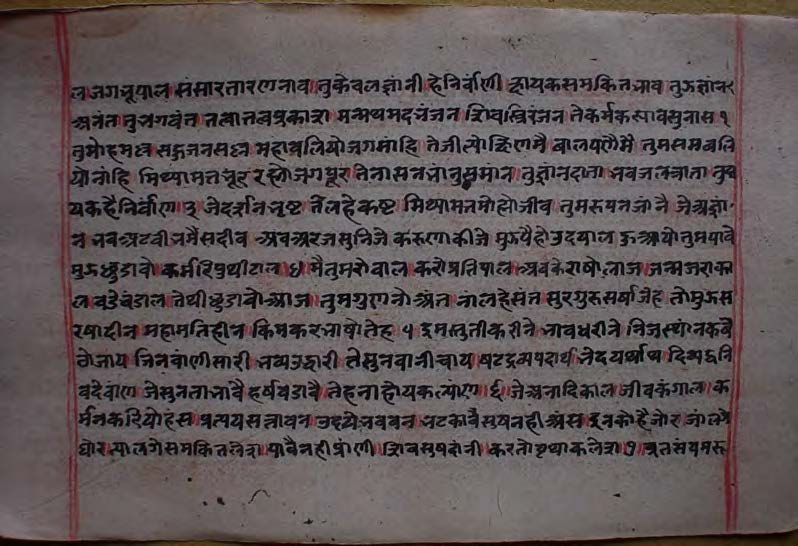 ल जगभूपाल संसारतारणनाव तु केवलज्ञांनी हे निर्वाणी क्षायकसमकितभाव तुऊज्ञांन
अनंत तु भगवंत तत्वातत्वप्रकाश मन्मथमदभंजन शिवत्रिरंजन ते कर्म कस्पावसुनास १
तुमोहमल्ल सठुजनसल्ल महाबलियो जगमांहि ते जीत्यो छिणमै बालपणैमै तुमसमबलि
यो नांहि मिथ्यामत्तभूर रह्यो जगपूर तेनासनभांनुसमांन तु ज्ञांनदाता भवजलत्राता तु
यक है निर्वाण ३ जे दर्शनभृष्ट ते लहे कष्ट मिथ्यामतमोह्यो जीव तुमरूपनजांनै जे अज्ञां
न भवअटवी भमै सदीव अब अरज सुनिजे करुणा कीजे मुऊयै हो उदयाल ऊ आयो तुमपावे
मुऊ छुडावो कर्मरिपुथी टाल ४ मै तुमरो बाल करो प्रतिपाल अबके राषो लाज जन्मजराका
ल बडे चंडाल तेथी छुडावो आज तुमगुणनो अंत नां लहे संत सुरगुरु सर्षा जेह तो मुऊस
रषा दीन महामतिहीन किम कर भाषो तेह ५ इम स्तुती करीने भावधरीने निजस्थांनकबै
ठो जाय जिनवांणी सारी भव्यउद्धारी ते सुनवानी चाय षटद्रव्यपदार्थ भेदयथार्थ दिव्यध्वनि
वदे वांण जे सुनता भावै हर्ष बढावै तेहना होय कल्यांण ६ जे अनादिकाल जीव कंगाल क
र्म न करियो हंस प्रत्ययसत्तावन उदये नवनव भटकावै सुष नही अंस इनको है जोर जां लगे
घोर त्यां लगे समकित लेश पावै नही प्रांणी शिवसुषदांनी करतो पृथा कलेश ७ व्रतसंयम